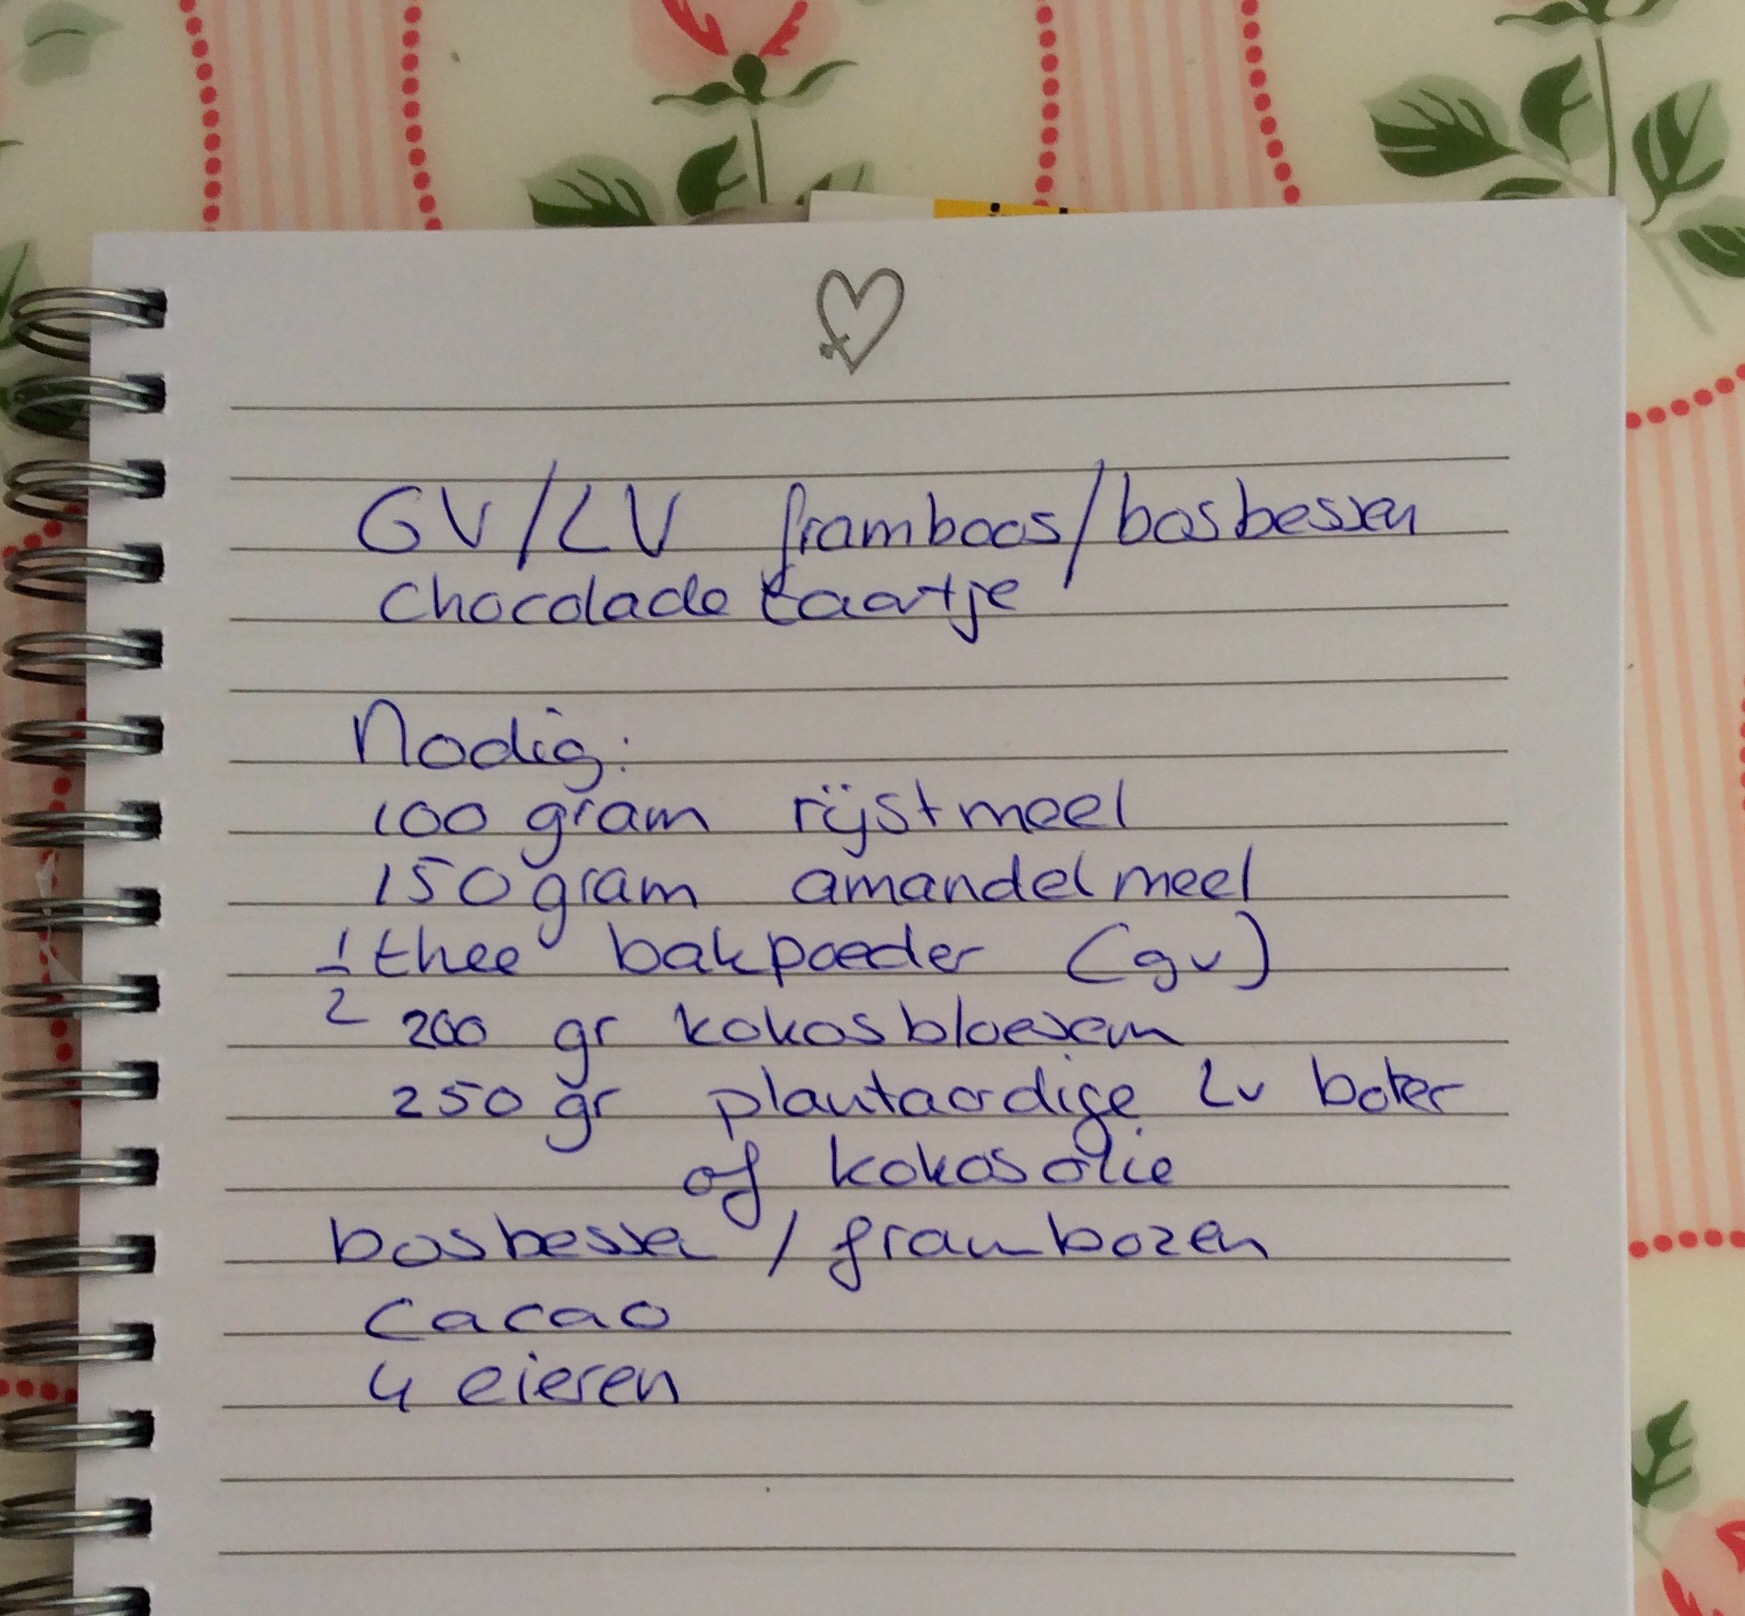 GV/LV framboos/bosbessen
chocolade taartje
Nodig:
100 gram rijstmeel
150 gram amandelmeel
1/2 thee bakpoeder (gv)
200 gr kokosbloesem
250 gr plantaardige Lv boter
of kokosolie
bosbessen / frambozen
cacao
4 eieren